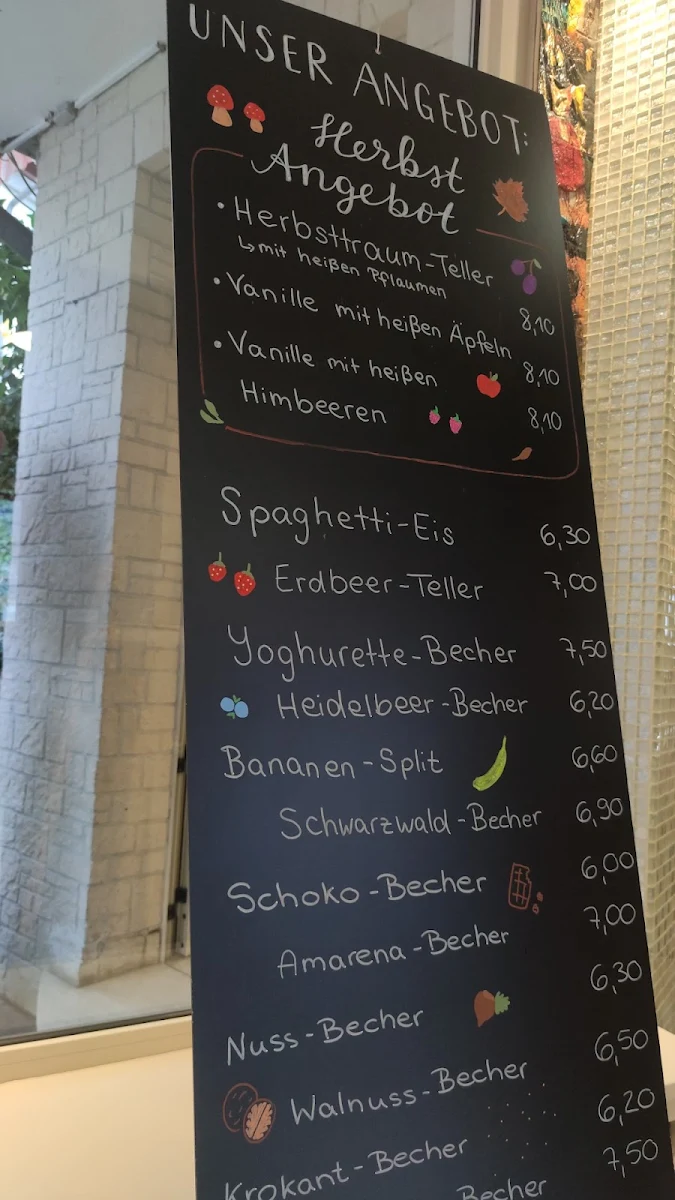 UNSER ANGEBOT:
Herbst
Angebot
• Herbsttraum-Teller
↳ mit heißen Pflaumen 8,10
• Vanille mit heißen Äpfeln 8,10
• Vanille mit heißen
Himbeeren 8,10
Spaghetti-Eis 6,30
Erdbeer-Teller 7,00
Yoghurette-Becher 7,50
Heidelbeer-Becher 6,20
Bananen-Split 6,60
Schwarzwald-Becher 6,90
Schoko-Becher 6,00
Amarena-Becher 7,00
Nuss-Becher 6,30
Walnuss-Becher 6,50
Krokant-Becher 6,20
-Becher 7,50